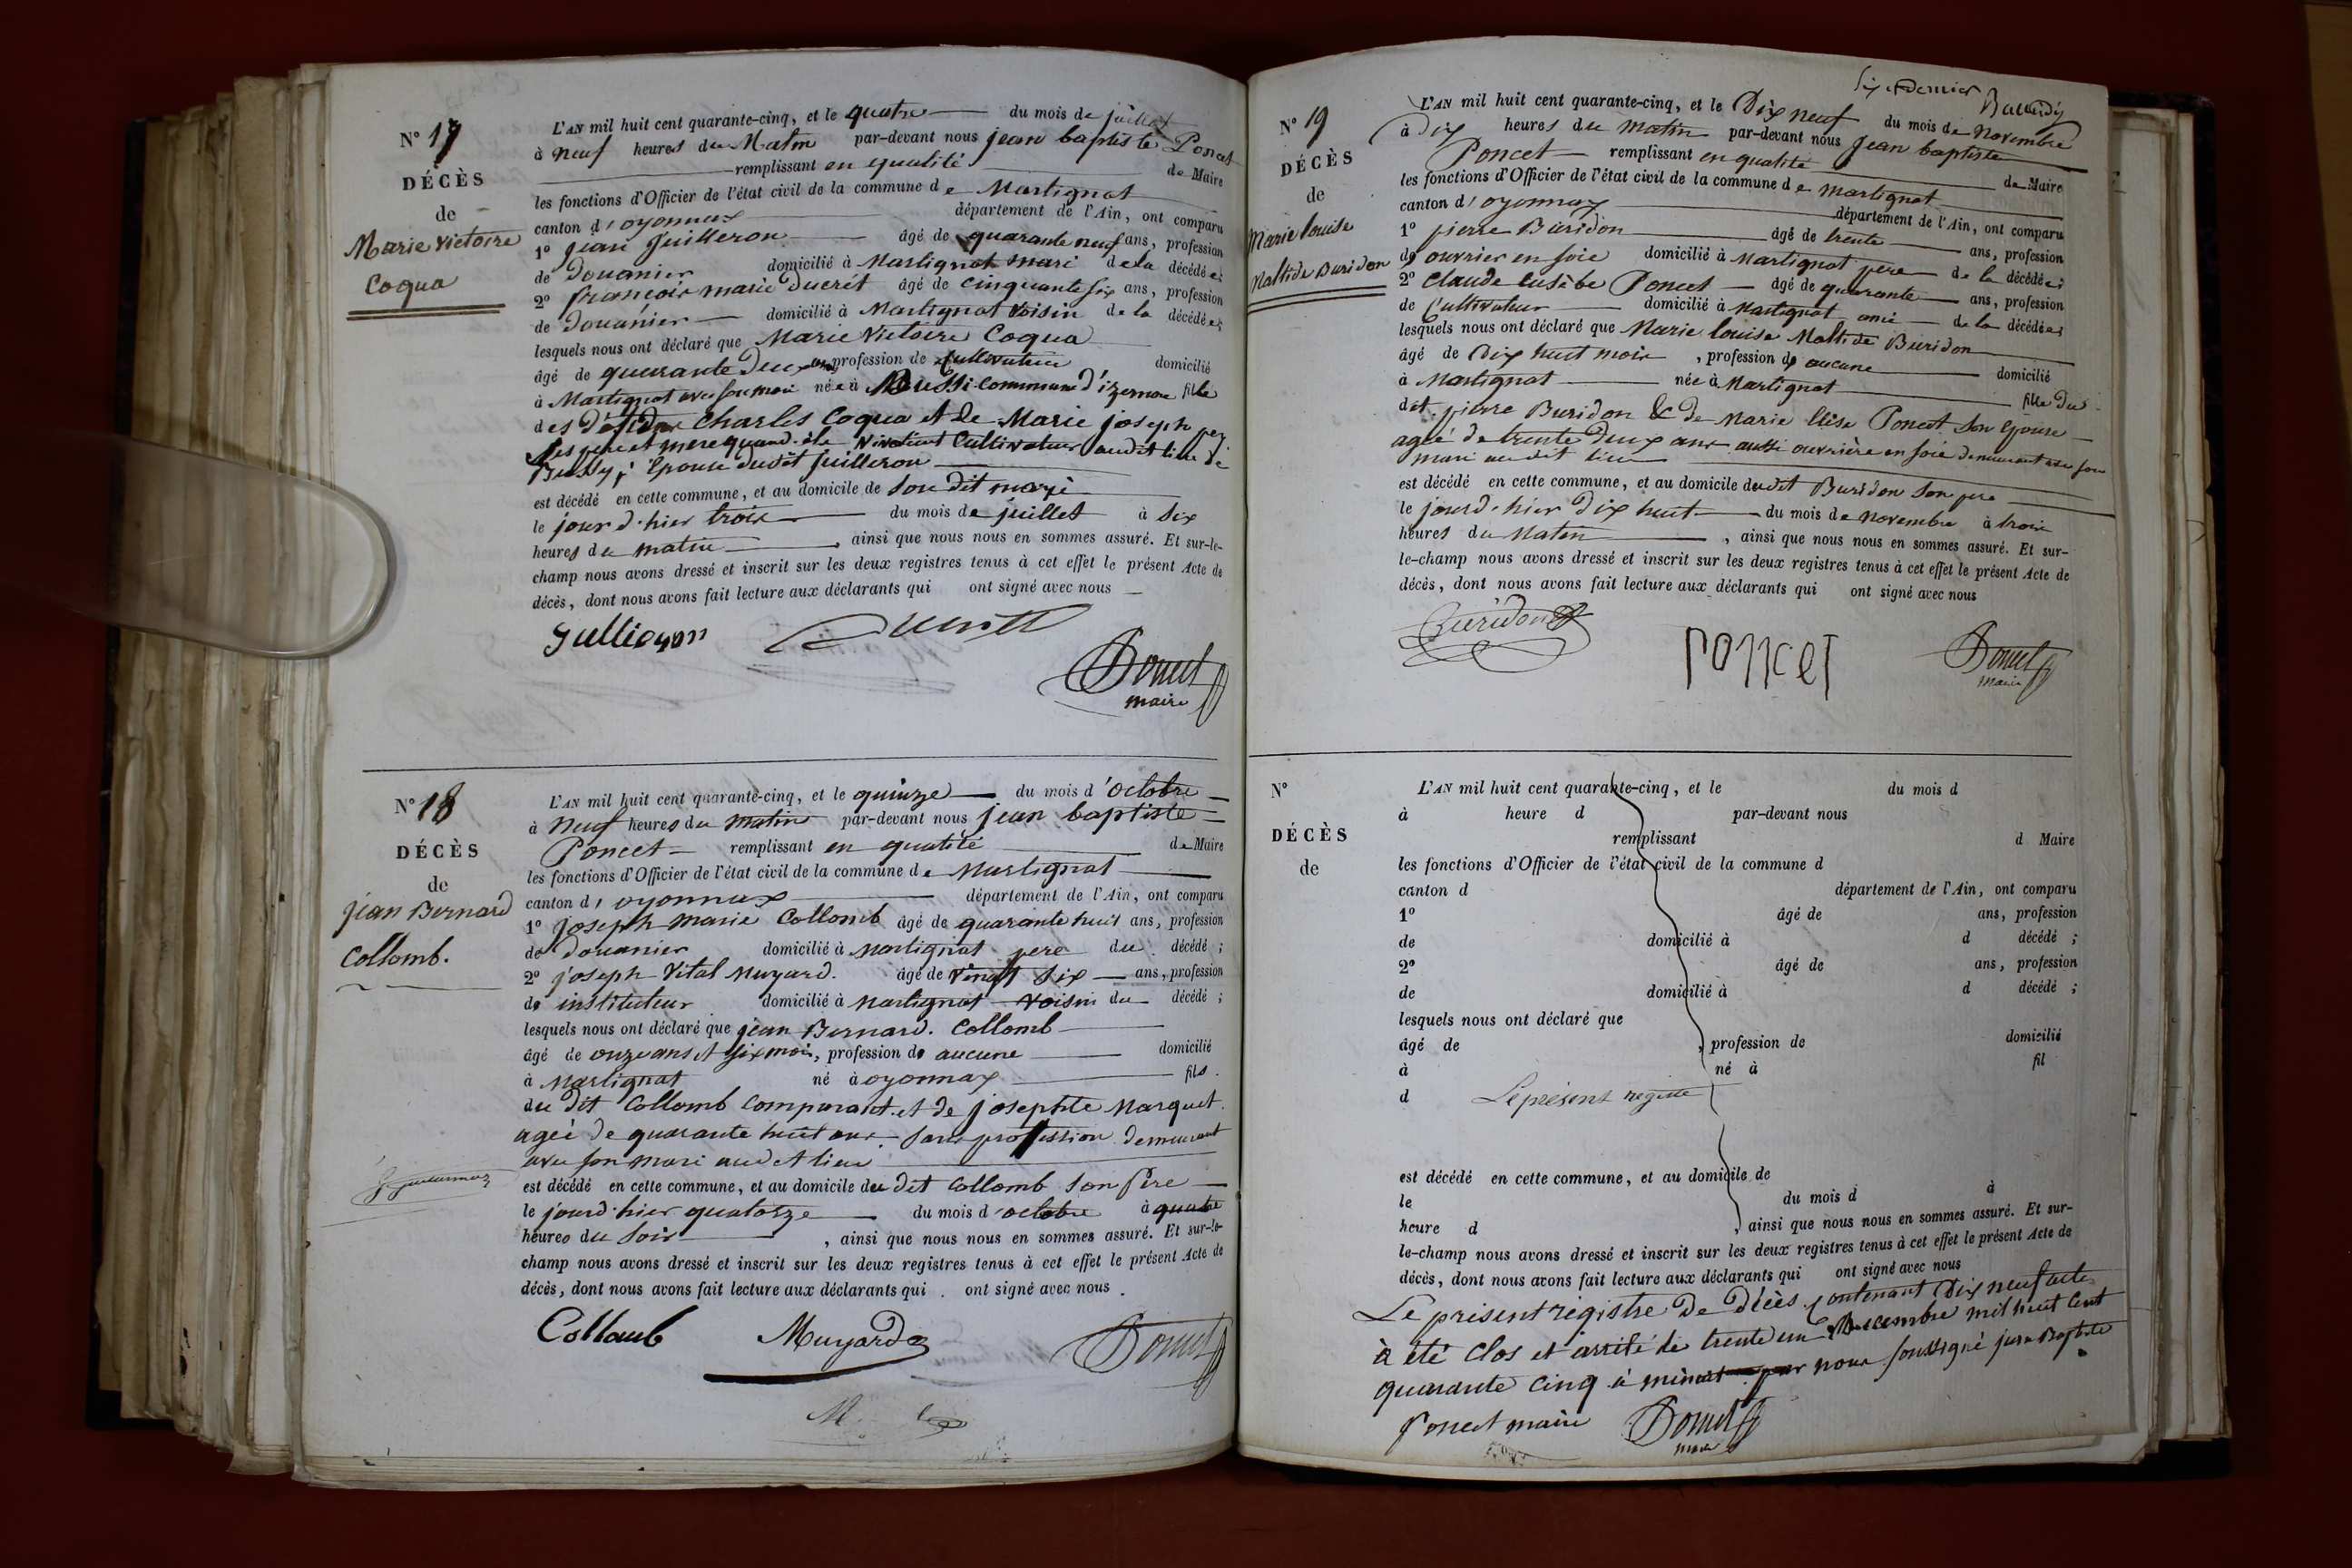 N° 17
DÉCÈS
de
Marie Victoire
Coqua
L'AN mil huit cent quarante-cinq, et le quatre du mois de juillet
à neuf heures du Matin par-devant nous jean baptiste Poncet
remplissant en qualité de Maire
les fonctions d'Officier de l'état civil de la commune de Martignat
canton d'oyonnax département de l'Ain, ont comparu
1° jean juilleron âgé de quarante neuf ans, profession
de douanier domicilié à Martignat mari de la décédée;
2° françois marie Ducrét âgé de cinquante six ans, profession
de douanier domicilié à Martignat voisin de la décédée;
lesquels nous ont déclaré que Marie Victoire Coqua
âgé de quarante deux ans, profession de cultivatrice domicilié
à Martignat avec son mari née à Bussi commune d'izernore fille
des défunts Charles Coqua et de Marie joseph
ses pere et mere quand ils vivaient Cultivateurs audit lieu de
Bussy; Epouse dudit juilleron
est décédé en cette commune, et au domicile de son dit mari
le jour d'hier trois du mois de juillet à six
heures du matin, ainsi que nous nous en sommes assuré. Et sur-le-
champ nous avons dressé et inscrit sur les deux registres tenus à cet effet le présent Acte de
décès, dont nous avons fait lecture aux déclarants qui ont signé avec nous
Ducrét
Poncet
maire
N° 18
DÉCÈS
de
jean Bernard
Collomb.
L'AN mil huit cent quarante-cinq, et le quinze du mois d'octobre
à neuf heures du matin par-devant nous jean baptiste
Poncet remplissant en qualité de Maire
les fonctions d'Officier de l'état civil de la commune de Martignat
canton d'oyonnax département de l'Ain, ont comparu
1° joseph marie Collomb âgé de quarante huit ans, profession
de douanier domicilié à Martignat pere du décédé;
2° joseph Vital Muyard. âgé de vingt six ans, profession
de instituteur domicilié à Martignat voisin du décédé;
lesquels nous ont déclaré que jean Bernard. Collomb
âgé de onze ans et six mois, profession de aucune domicilié
à Martignat né à oyonnax fils.
du dit Collomb comparant. et de josephte Marquet.
ageé de quarante huit ans. sans profession demeurant
avec son mari audit lieu
est décédé en cette commune, et au domicile du dit Collomb son Père
le jourd'hier quatorze du mois d'octobre à quatre
heures du soir, ainsi que nous nous en sommes assuré. Et sur-le-
champ nous avons dressé et inscrit sur les deux registres tenus à cet effet le présent Acte de
décès, dont nous avons fait lecture aux déclarants qui ont signé avec nous.
Collomb Muyard Poncet
Six et dernier
N° 19
DÉCÈS
de
Marie louise
Maltide Buridon
L'AN mil huit cent quarante-cinq, et le Dix neuf du mois de novembre
à dix heures du matin par-devant nous jean baptiste
Poncet remplissant en qualité de Maire
les fonctions d'Officier de l'état civil de la commune de Martignat
canton d'oyonnax département de l'Ain, ont comparu
1° pierre Buridon âgé de trente ans, profession
de ouvrier en soie domicilié à Martignat pere de la décédée;
2° Claude Eusèbe Poncet âgé de quarante ans, profession
de Cultivateur domicilié à Martignat ami de la décédée;
lesquels nous ont déclaré que Marie louise Maltide Buridon
âgé de dix huit mois, profession de aucune domicilié
à Martignat née à Martignat fille du
dit. pierre Buridon & de Marie Elise Poncet son Epouse
ageé de trente deux ans aussi ouvrière en soie demeurant avec son
mari audit lieu
est décédé en cette commune, et au domicile dudit Buridon son pere
le jourd'hier dix huit du mois de novembre à trois
heures du Matin, ainsi que nous nous en sommes assuré. Et sur-
le-champ nous avons dressé et inscrit sur les deux registres tenus à cet effet le présent Acte de
décès, dont nous avons fait lecture aux déclarants qui ont signé avec nous
Buridon
Poncet
Poncet
maire
N°
DÉCÈS
de
L'AN mil huit cent quarante-cinq, et le du mois d
à heure d par-devant nous
remplissant d Maire
les fonctions d'Officier de l'état civil de la commune d
canton d département de l'Ain, ont comparu
1° âgé de ans, profession
de domicilié à d décédé;
2° âgé de ans, profession
de domicilié à d décédé;
lesquels nous ont déclaré que
âgé de, profession de domicilié
à né à fil
d Le présent registre
est décédé en cette commune, et au domicile de
le du mois d à
heure d, ainsi que nous nous en sommes assuré. Et sur-
le-champ nous avons dressé et inscrit sur les deux registres tenus à cet effet le présent Acte de
décès, dont nous avons fait lecture aux déclarants qui ont signé avec nous
Le present régistre de décès contenant dix neuf actes
à été clos et arrêté le trente un Decembre mil huit cent
quarante cinq à minuit par nous soussigné jean Baptiste
Poncet maire Poncet
maire